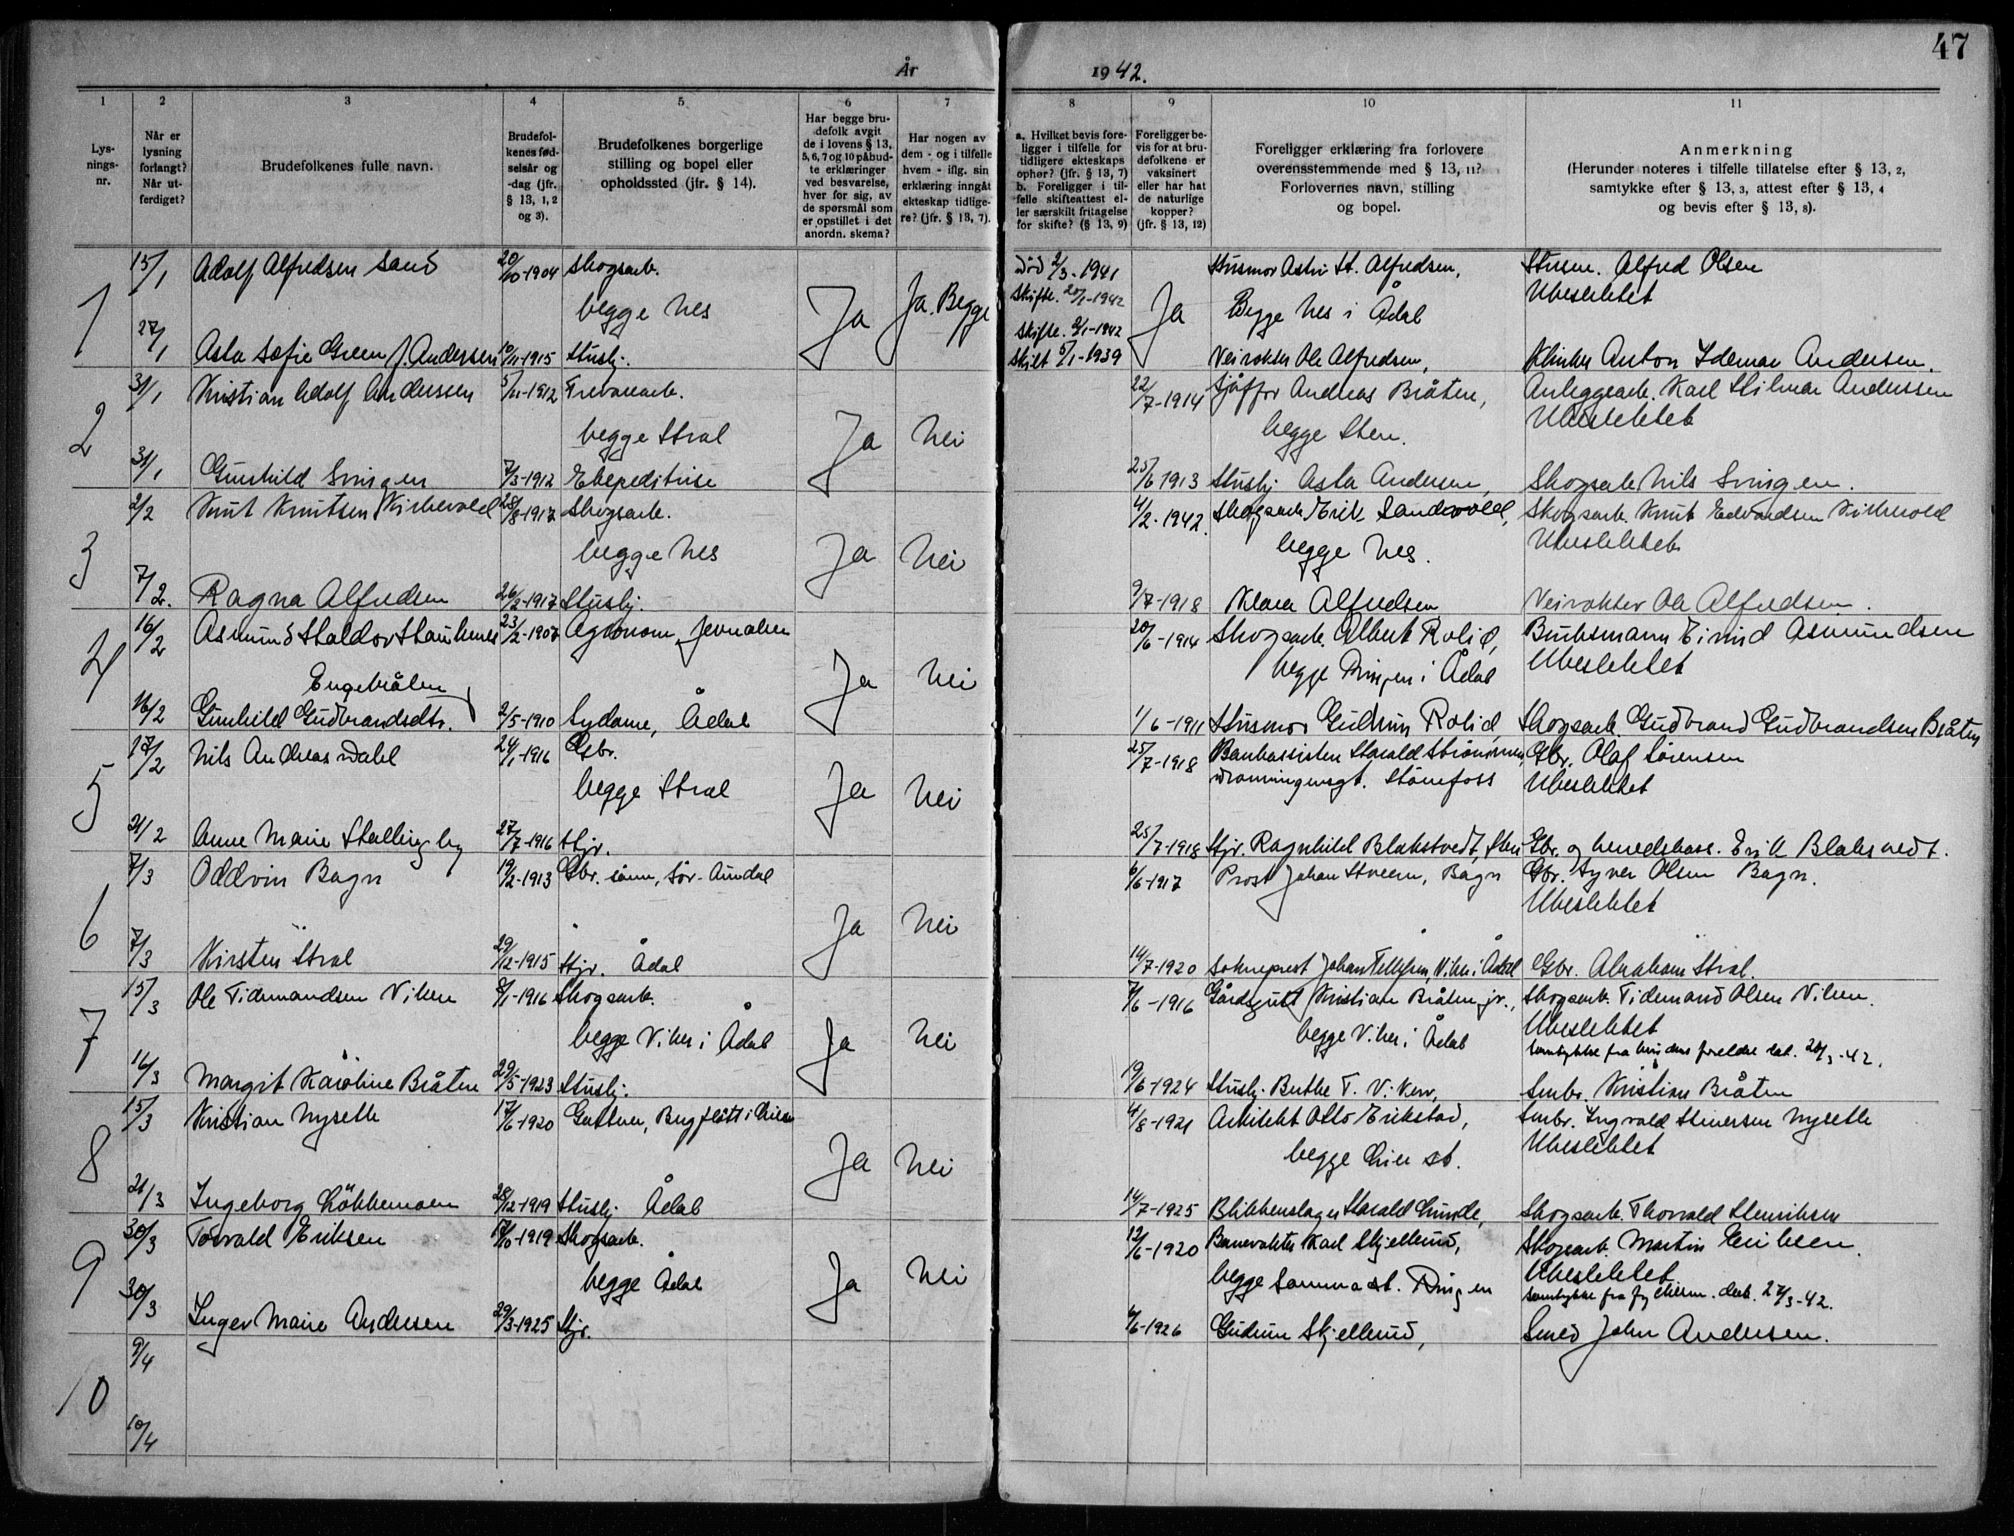 47
År 1942.
1 2 3 4 5 6 7 8 9 10 11
Lys-
nings-
nr.
Når er
lysning
forlangt?
Når ut-
ferdiget?
Brudefolkenes fulle navn.
Brudefol-
kenes fød-
selsår og
-dag (jfr.
§ 13, 1, 2
og 3).
Brudefolkenes borgerlige
stilling og bopel eller
opholdssted (jfr. § 14).
Har begge bru-
defolk avgit
de i lovens § 13,
5, 6, 7 og 10 påbud-
te erklæringer
ved besvarelse,
hver for sig, av
de spørsmål som
er opstillet i det
anordn. skema?
Har nogen av
dem - og i tilfelle
hvem - iflg. sin
erklæring inngått
ekteskap tidlige-
re? (jfr. § 13, 7).
a. Hvilket bevis fore-
ligger i tilfelle for
tidligere ekteskaps
ophør? (jfr. § 13, 7)
b. Foreligger i til-
felle skifteattest el-
ler særskilt fritagelse
for skifte? (§ 13, 9)
Foreligger be-
vis for at bru-
defolkene er
vaksinert
eller har hat
de naturlige
kopper?
(jfr. § 13, 12)
Foreligger erklæring fra forlovere
overensstemmende med § 13, 11?
Forlovernes navn, stilling
og bopel.
Anmerkning
(Herunder noteres i tilfelle tillatelse efter § 13, 2,
samtykke efter § 13, 3, attest efter § 13, 4
og bevis efter § 13, 8).
1 15/1 Adolf Alfredsen Sand 20/10-1904 Skogsarb. død 2/3-1941 Husmor Alfredsen, Alfred Olsen
begge Nes Ja Ja. Begge Skifte. 20/1-1942 Ja Begge Nes i Ådal Ubeslektet
Skifte. 1-1942
27/1 Asta Sofie Green f. Andersen 10/11-1915 Hushj. Skilt 5/1-1939 Veivokter Ole Alfredsen, Anton Idemar Andersen.
2 31/1 Kristian Adolf Anderssen 5/11-1912 22/7-1914 Sjåffør Andreas Bråten, Anleggsarb. Karl Hilmar Anderssen
begge Hval Ja Nei begge Hen. Ubeslektet
31/1 Gunhild Svingen 7/3-1912 Ekspeditrise 25/6 1913 Hushj Asta Andersen, Skogsarb Nils Svingen.
3 2/2 Knut Knutsen Kirkevold 28/8-1917 Skogsarb. 4/2-1942. Skogsarb Erik Sandvold, Skogsarb. Knut Edvardsen Kirkevold
begge Nes Ja Nei begge Nes. Ubeslektet
7/2. Ragna Alfredsen 26/2-1917 Hushj. 9/7-1918 Klara Alfredsen Veivokter Ole Alfredsen.
4 16/2 Asmund Haldor Haukenes 23/2-1907 Agronom, Jevnaker 20/6-1914 Skogsarb. Albert Rolid, Bruksmann Eivind Asmundsen
Engebråten Ja Nei begge Ringen i Ådal Ubeslektet
16/2 Gunhild Gudbrandsdtr. 2/5-1910 Sydame, Ådal 1/6-1911 Husmor Gudrun Rolid, Skogsarb. Gudbrand Gudbrandsen Bråten
5 17/2 Nils Andreas Dahl 24/1-1916 Gbr. 25/7-1918 Bankassistent Harald Strømmen, Gbr. Olaf Sørensen
begge Hval Ja Nei Dronningensgt. Hønefoss Ubeslektet
21/2 Anne Marie Hallingby 27/7-1916 Hjv. 25/7-1918 Hjv. Ragnhild Blakstvedt, Hen Gbr. og herredskass. Erik Blakstvedt.
6 7/3 Oddvin Bagn 19/2-1913 Gbr. sønn, Sør-Aurdal 6/6-1917 Prost Johan Hveem, Bagn Gbr. Syver Olsen Bagn.
Ja Nei Ubeslektet
7/3 Kirsten Hval 29/12-1915 Hjv. Ådal 14/7-1920 Sokneprest Johan Tellefsen, Viker i Ådal Gbr. Abraham Hval.
7 15/3 Ole Tidemandsen Viken 8/1-1916 Skogsarb. 7/6-1916 Gårdsgutt Kristian Bråten jr., Skogsarb. Tidemand Olsen Viken.
begge Viker i Ådal Ja Nei begge Viker i Ådal Ubeslektet
Samtykke fra brudens foreldre dat. 20/3-42.
16/3 Margit Karoline Bråten 29/5-1923 Hushj. 19/6-1924 Hushj. Berthe T. Viken, Smbr. Kristian Bråten
8 15/3 Kristian Nyseth 17/6-1920 Gartner, 4/8-1921 Arkitekt Otto Erikstad, Smbr. Ingvald Steinersen Nyseth
Ja Nei begge Lier st. Ubeslektet
21/3 Ingeborg Løkkemoen 28/12-1919 Hushj. Ådal 14/7-1925 Blikkenslager Harald Lunde, Skogsarb. Thorvald Henriksen
9 30/3 Torvald Eriksen 17/10-1919 Skogsarb. 12/6-1920 Banevokter Karl Skjellerud, Skogsarb. Martin Eriksen.
begge Ådal Ja Nei begge Samma st. Ringen Ubeslektet
Samtykke fra fylkesm. dat. 27/3-42.
30/3 Inger Marie Andersen 29/3-1925 Hjv. 6/6-1926 Gudrun Skjellerud, Smed John Andersen.
10 9/4
10/4